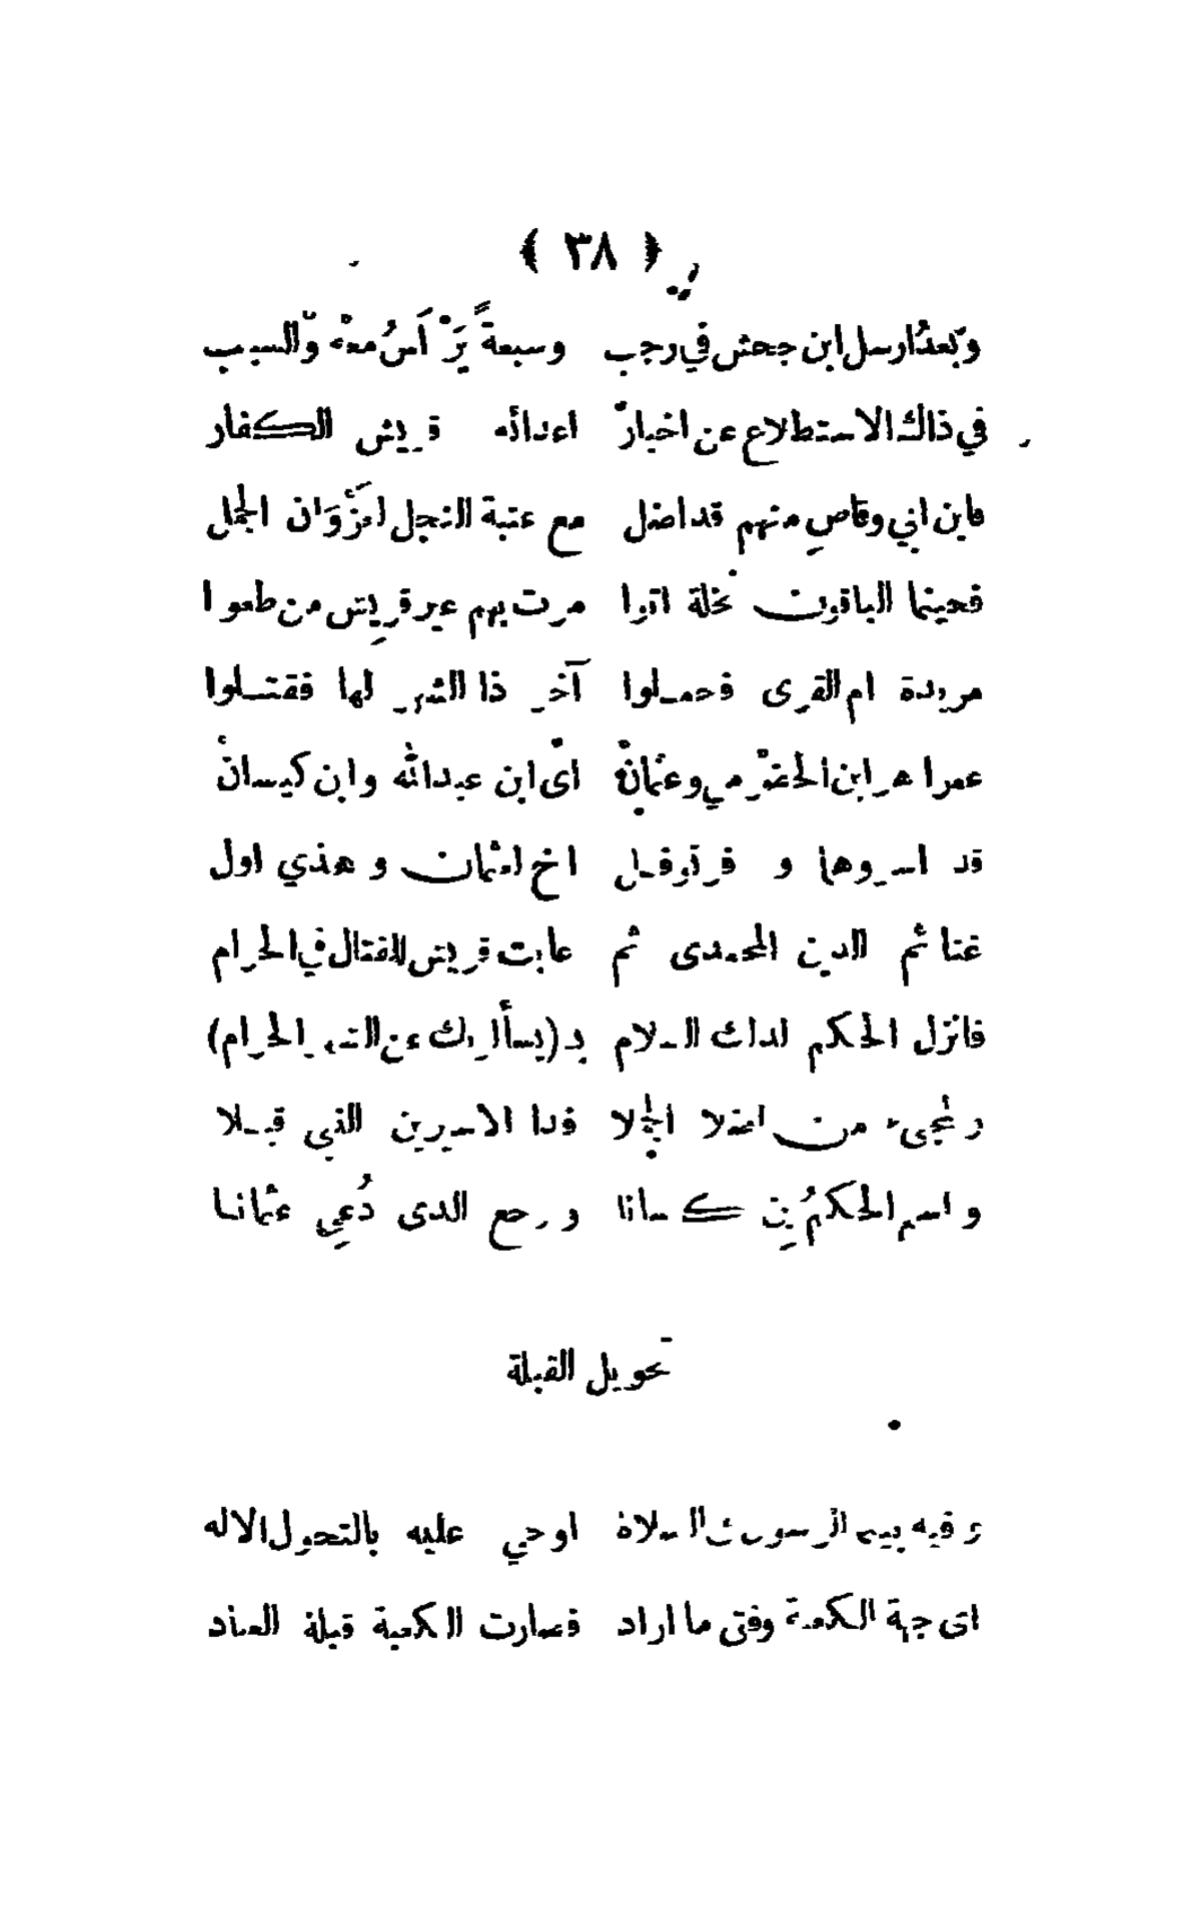 ﴿ ٣٨ ﴾
وبعدُ ارسل ابن جحش في رجب وسبعةً يَرْأَسُ معْه والسبب
في ذاك الاستطلاع عن اخبار اعدائه قريش الكفار
فابن ابي وقاصٍ منهم قد اضل مع عتبة النجل لغَزْوَان الجمل
فحينما الباقون نخلة اتوا مرت بهم عير قريش من طعوا
مريدة ام القرى فحملوا آخر ذا الشهر لها فقتلوا
عمرا هو ابن الحضرمي وعثمان ايّ ابن عبدالله وابن كيسان
قد اسروهما و فر نوفل اخ لعثمان و هذي اول
غنائم الدين المحمدى ثم عابت قريش للقتال في الحرام
فانزل الحكم لذاك السلام بـ (يسألونك عن الشهر الحرام)
ومجىء من اضلا الجملا فدا الاسيرين الذي قبلا
واسم الحكمُ بنِ كيسانا ورجع الذى دُعِي عثمانا
تحويل القبلة
وفيه بينما الرسول في الصلاة اوحي عليه بالتحول الاله
الى جهة الكعبة وفق ما اراد فصارت الكعبة قبلة العباد